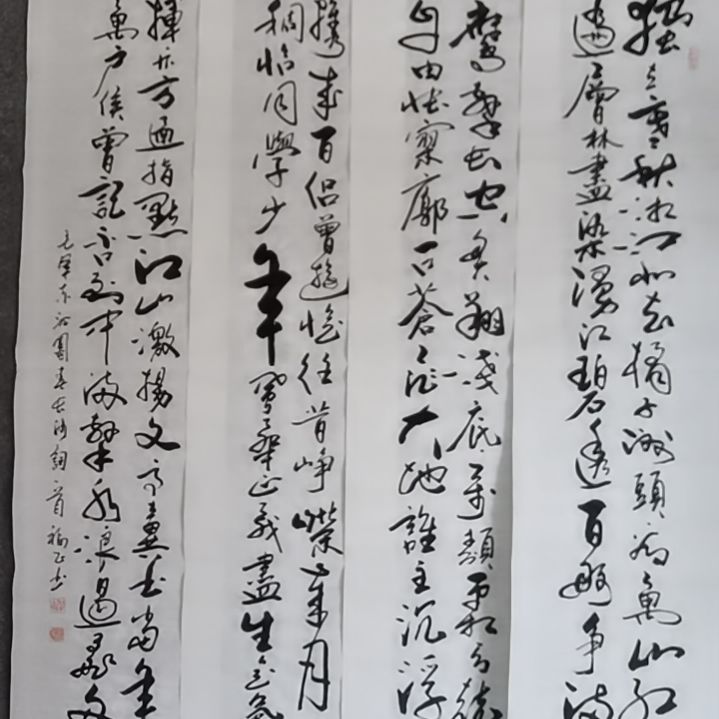 獨立寒秋湘江北去橘子洲頭看萬山紅
遍層林盡染漫江碧透百舸争流
鷹擊長空魚翔淺底萬類霜天競
自由悵寥廓問蒼茫大地誰主沉浮
攜來百侣曾遊憶往昔崢嶸歲月
稠恰同學少年風華正茂書生意氣
揮斥方遒指點江山激揚文字糞土當年
萬户侯曾記否到中流擊水浪遏飛舟
毛澤東沁園春長沙詞一首 福正书